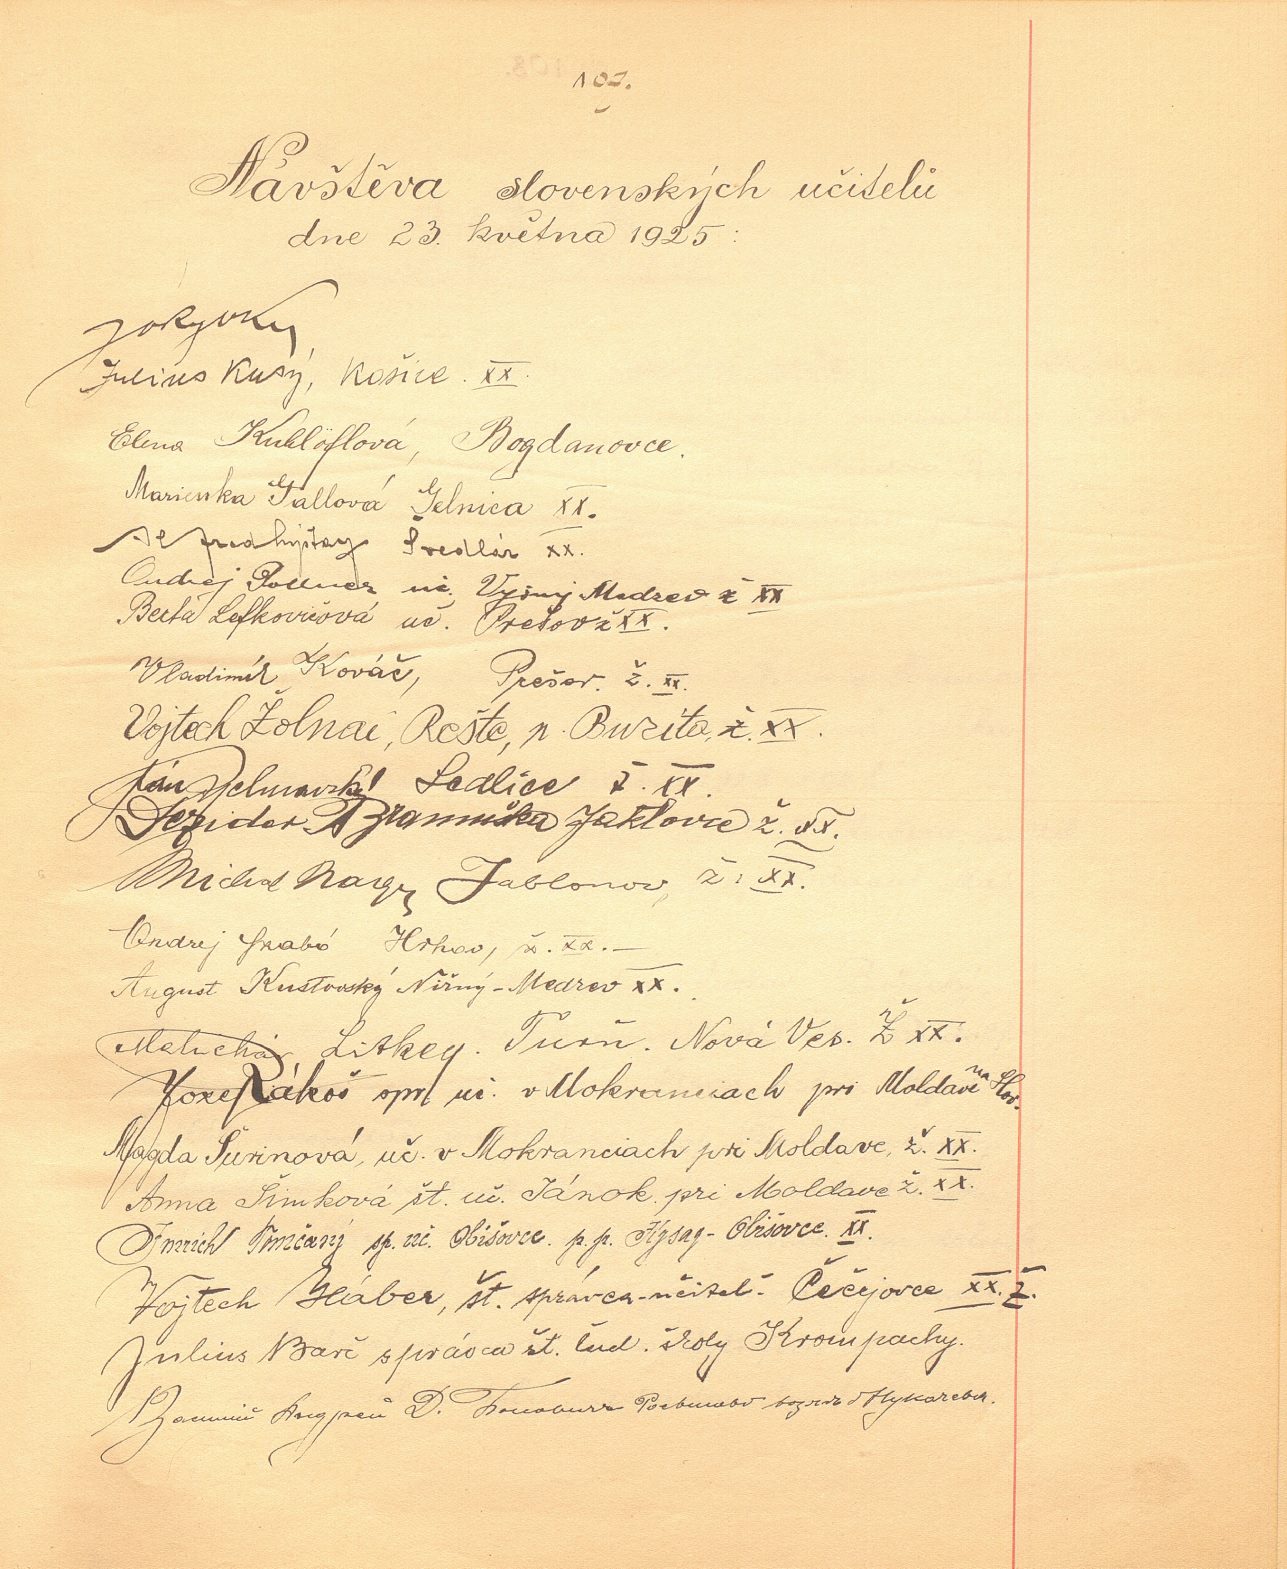 107.
Návštěva slovenských učitelů
dne 23. května 1925:
Julius Kusý, Košice. XX.
Elena Bogdanovce.
Marienka Gallová Gelnica XX.
Švedlár XX.
Ondrej Pollner uč. Vyšný Medzev ž XX
Berta Lefkovičová uč. Prešov ž XX.
Vladimír Kováč, Prešov. ž. XX.
Vojtech Žolnai, Rešte, p. Buzita, ž. XX.
Ján Sedlice ž. XX.
Dezider Jaklovce ž. XX.
Michal Nagy Jablonov, ž. XX.
Ondrej Szabó Hrhov, ž. XX. —
August Kustovský Nižný-Medzev XX.
Litkey. Turň. Nová Ves. Ž XX.
Jozef Rákoš spr. uč. v Mokranciach pri Moldave na Slov.
Magda Šurinová, uč. v Mokranciach pri Moldave, ž. XX.
Anna Šimková št. uč. Jánok pri Moldave ž. XX.
Imrich Tinčaný sp. uč. Obišovce. p. p. Kysag-Obišovce. XX.
Vojtech Háber, št. správca-učitel. Čečejovce XX. ž.
Julius Barč správca št. ľud. školy Krompachy.